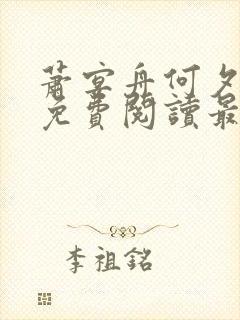 蕭宴舟何夕
免費閱讀最
李祖銘